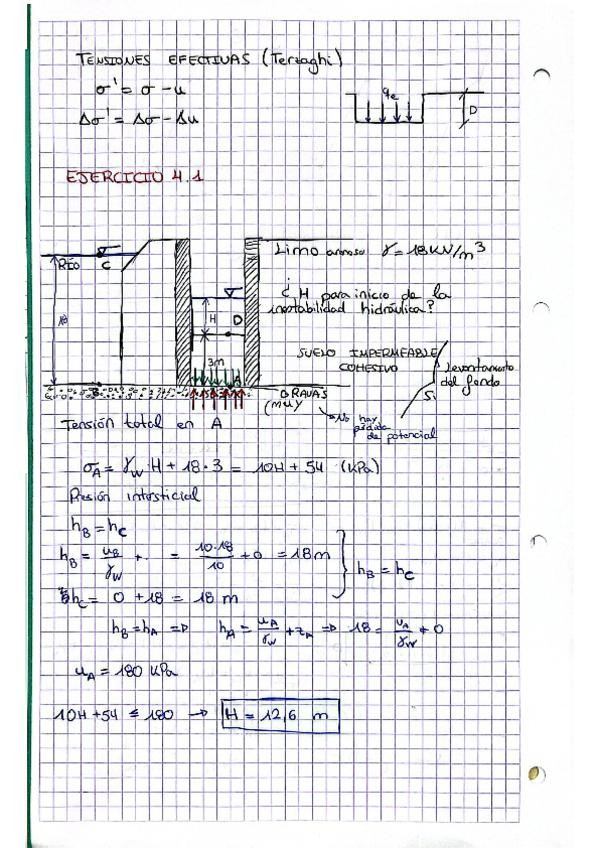 TENSIONES EFECTIVAS (Terzaghi)
σ' = σ - u
Δσ' = Δσ - Δu
qe
D
EJERCICIO 4.1
Limo arenoso γ = 18 KN/m³
RÍO C
¿H para inicio de la
inestabilidad hidráulica?
18
H D
SUELO IMPERMEABLE
COHESIVO
Levantamiento
del fondo
Si
3m
B
GRAVAS
(muy
No hay
pérdida
de potencial
Tensión total en A
σA = γw·H + 18·3 = 10H + 54 (KPa)
Presión intersticial
hB = hC
hB = uB/γw + . = 10·18/10 + 0 = 18 m
hB = hC
hC = 0 + 18 = 18 m
hB = hA => hA = uA/γw + zA => 18 = uA/γw + 0
uA = 180 KPa
10H + 54 ≤ 180 → H = 12,6 m